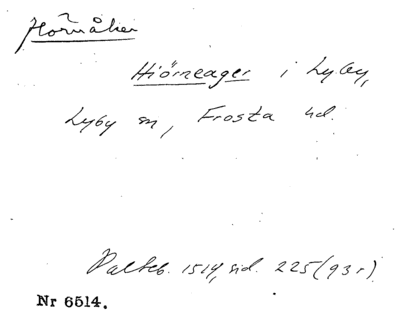 Hörnåker
Hiörneager i Lyby,
Lyby sn, Frosta hd.
Palteb. 1514, sid. 225 (93 r)
Nr 6514.